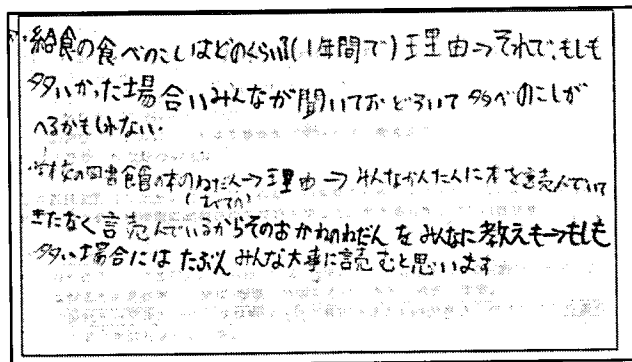 ・給食の食べのこしはどのくらいか(1年間で)理由→それで、もしも
多いかった場合いみんなが聞いておどろいて多べのこしが
へるかもしれない。
・学校の図書館の本のねだん→理由→みんなかんたんに本を読んでいて
(すべての)
きたなく読んでいるからそのおかねのねだんをみんなに教え→もしも
多い場合にはたぶんみんな大事に読むと思います